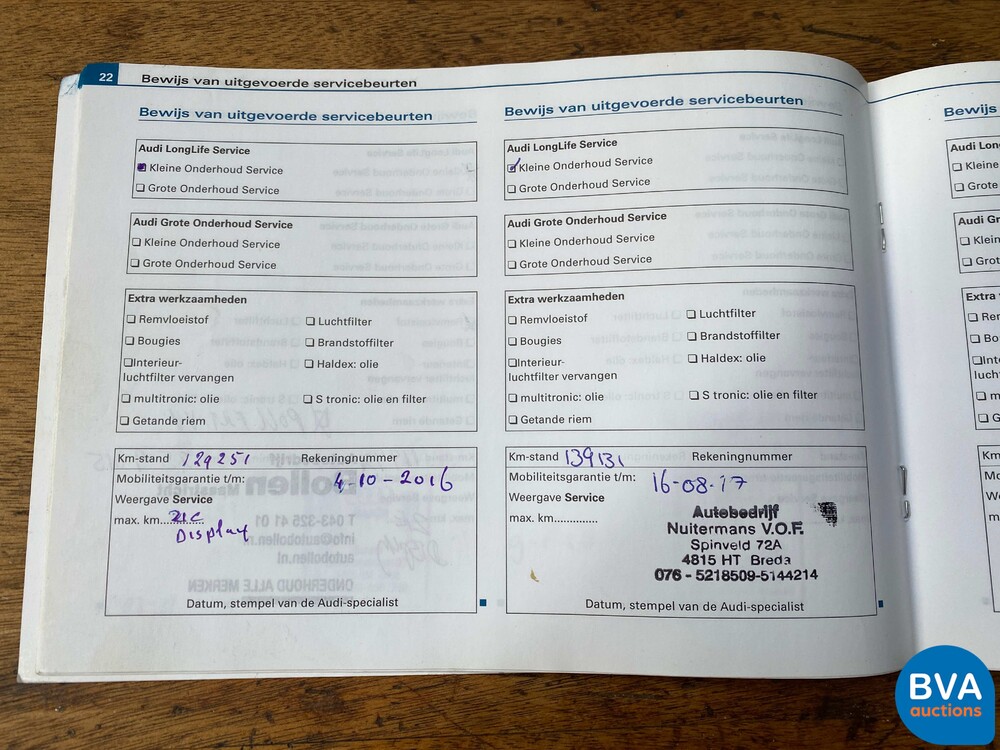 22 Bewijs van uitgevoerde servicebeurten
Bewijs van uitgevoerde servicebeurten
Audi LongLife Service
Kleine Onderhoud Service
Grote Onderhoud Service
Audi Grote Onderhoud Service
Kleine Onderhoud Service
Grote Onderhoud Service
Extra werkzaamheden
Remvloeistof Luchtfilter
Bougies Brandstoffilter
Interieur- Haldex: olie
luchtfilter vervangen
multitronic: olie S tronic: olie en filter
Getande riem
Km-stand 129251 Rekeningnummer
Mobiliteitsgarantie t/m: 4-10-2016
Weergave Service
max. km. zie
Display
Datum, stempel van de Audi-specialist
Bewijs van uitgevoerde servicebeurten
Audi LongLife Service
Kleine Onderhoud Service
Grote Onderhoud Service
Audi Grote Onderhoud Service
Kleine Onderhoud Service
Grote Onderhoud Service
Extra werkzaamheden
Remvloeistof Luchtfilter
Bougies Brandstoffilter
Interieur- Haldex: olie
luchtfilter vervangen
multitronic: olie S tronic: olie en filter
Getande riem
Km-stand 139131 Rekeningnummer
Mobiliteitsgarantie t/m: 16-08-17
Weergave Service
max. km.............
Autobedrijf
Nuitermans V.O.F.
Spinveld 72A
4815 HT Breda
076 - 5218509-5144214
Datum, stempel van de Audi-specialist
Bewijs
Audi Lon
Kleine
Grote
Audi Gr
Klein
Grot
Extra
Rer
Bo
Int
luch
m
G
Km
Mo
We
ma
BVA
auctions